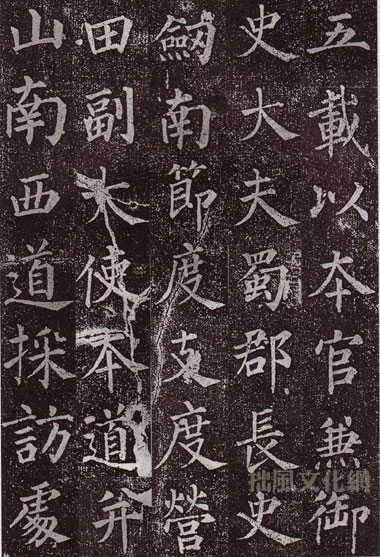 五載以本官兼御
史大夫蜀郡長史
劒南節度支度營
田副大使本道并
山南西道採訪處
拙風文化網